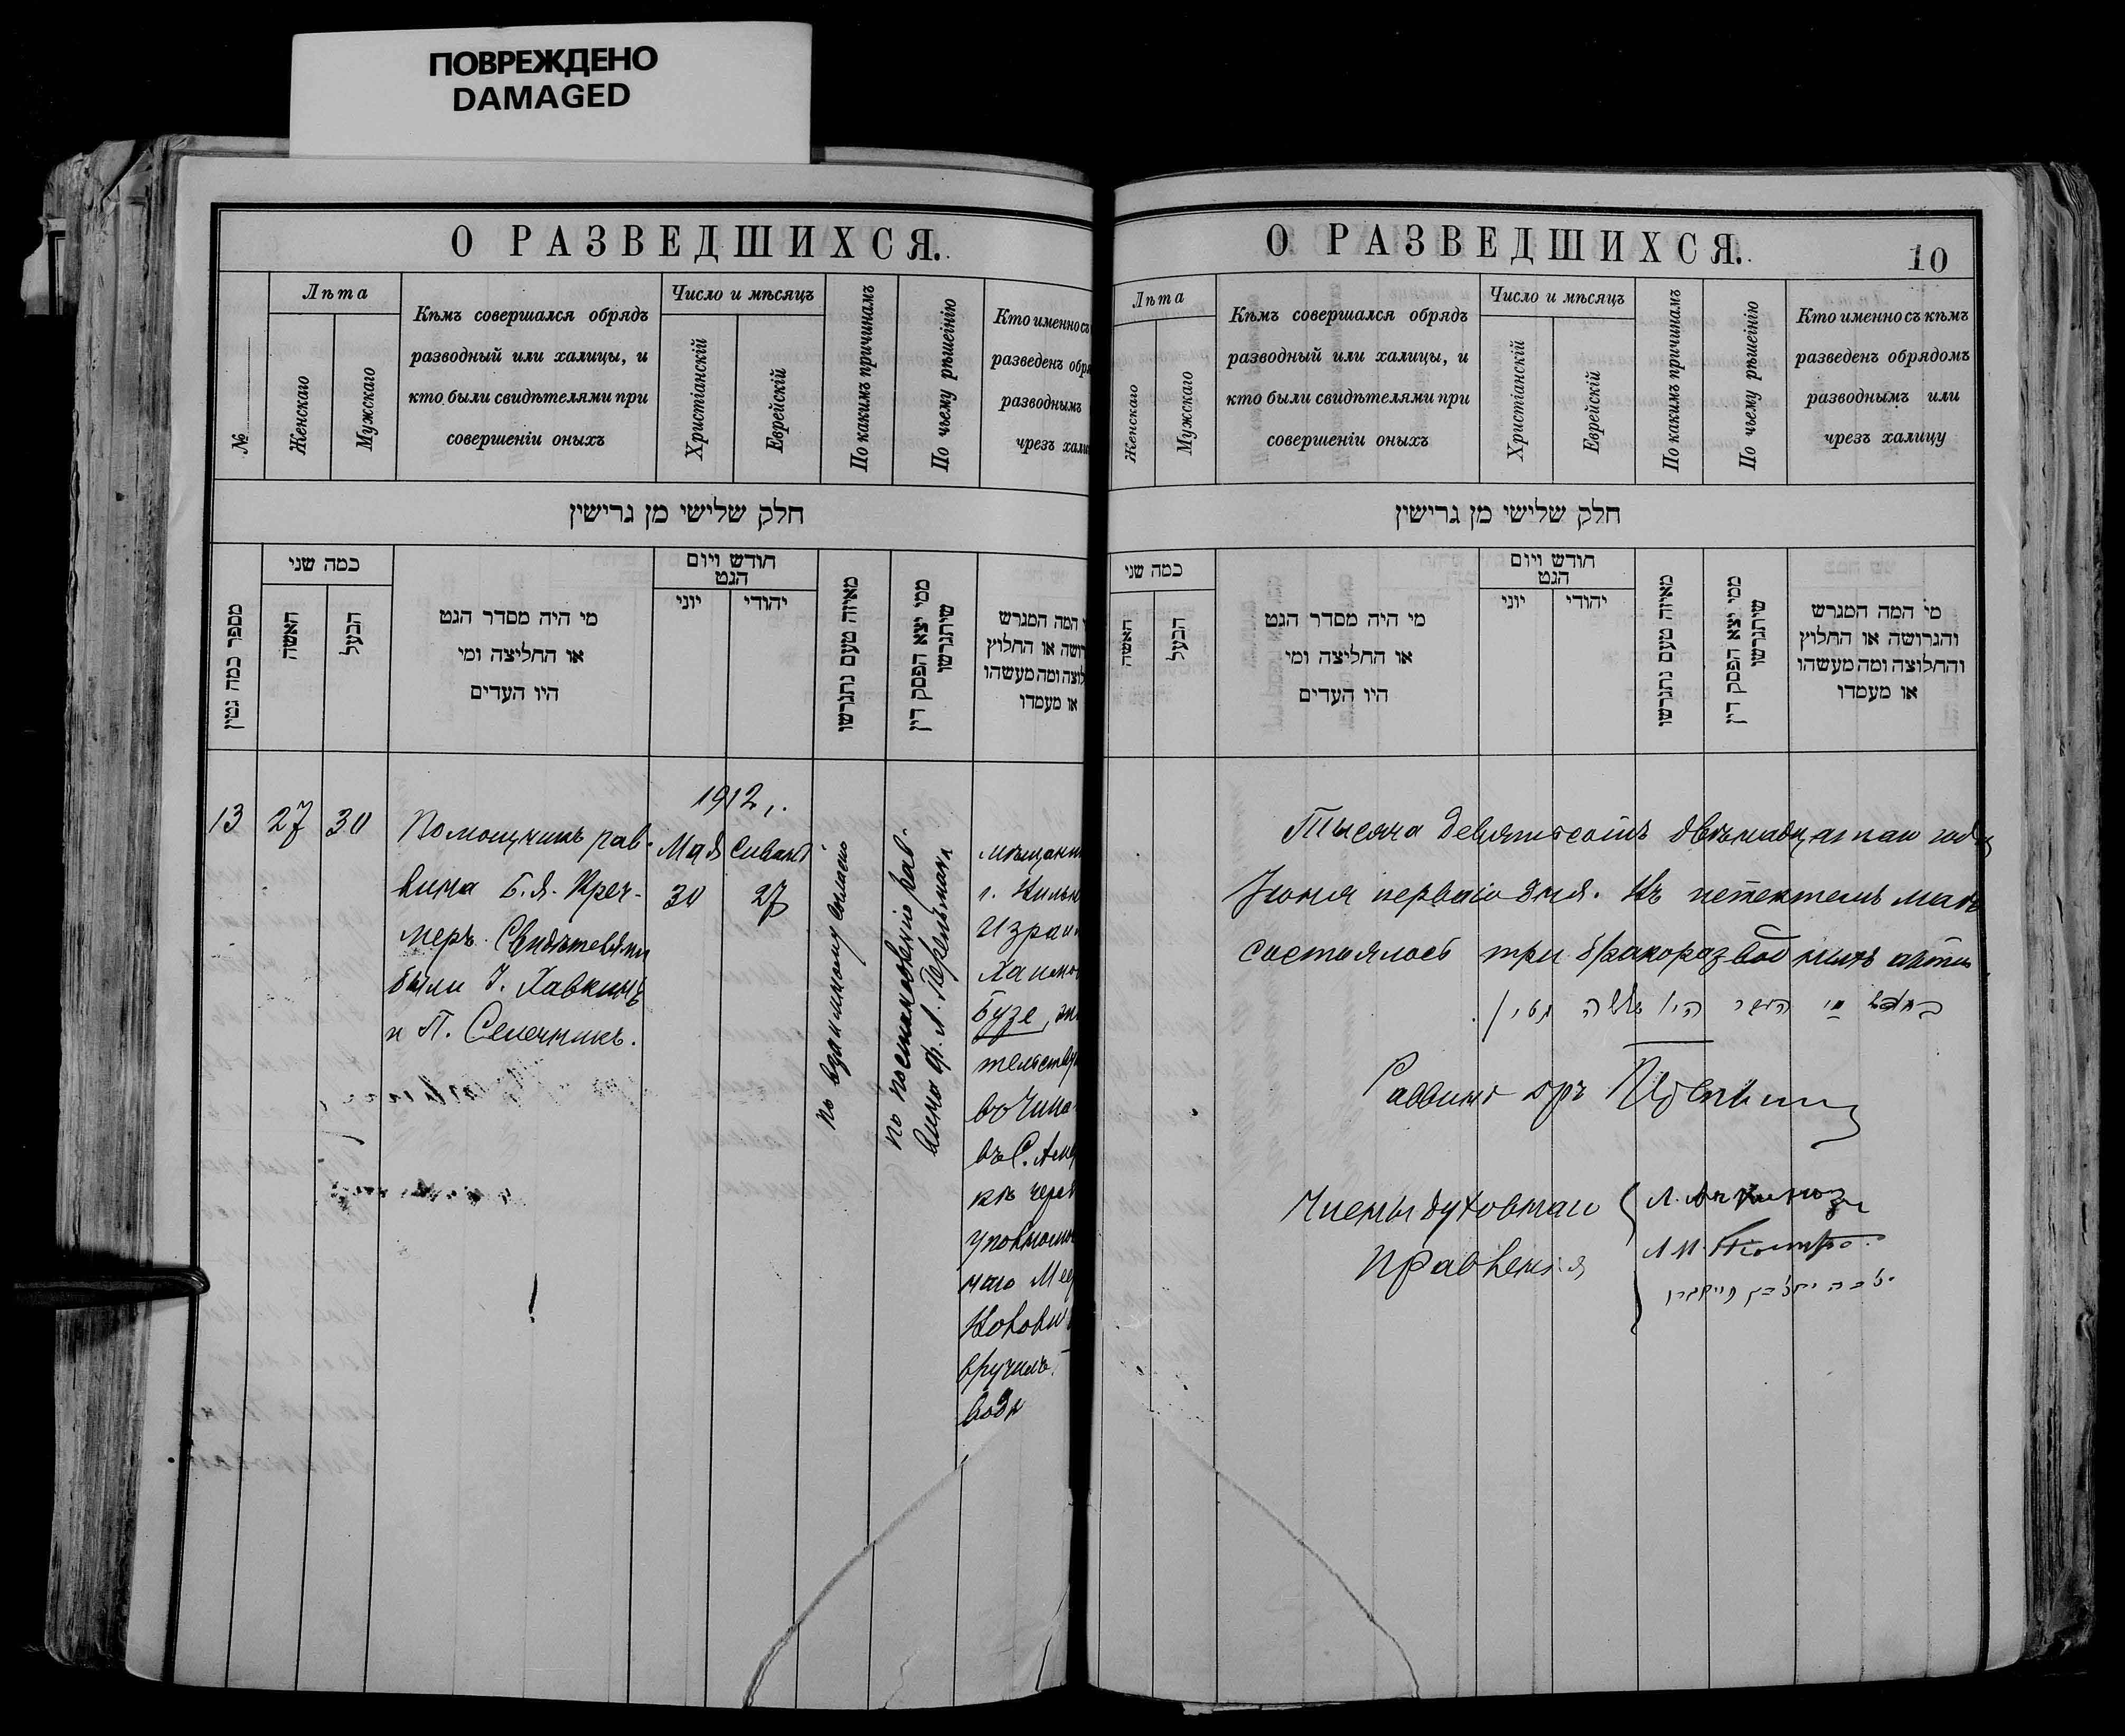 ПОВРЕЖДЕНО
DAMAGED
О РАЗВЕДШИХСЯ.
№
Лѣта
Женскаго
Мужскаго
Кѣмъ совершался обрядъ
разводный или халицы, и
кто были свидѣтелями при
совершеніи оныхъ
Число и мѣсяцъ
Христіанскій
Еврейскій
По какимъ причинамъ
По чьему рѣшенію
Кто именно съ
разведенъ обря
разводнымъ
чрезъ хали
חלק שלישי מן גרישין
מספר כמה גטין
כמה שני
האשה
הבעל
מי היה מסדר הגט
או החליצה ומי
היו העדים
חודש ויום
הגט
יוני
יהודי
מאיזה טעם נתגרשו
ממי יצא הפסק דין
שיתגרשו
המה המגרש
רושה או החלוץ
לוצה ומה מעשהו
או מעמדו
1912 г.
13
27
30
Помощникъ рав-
вина Б. Я. Креч-
меръ. Свидѣтелями
были І. Хавкинъ
и П. Селечникъ.
Мая
30
Сивана
27
по взаимному согласію
по постановленію рав-
вина ф. Л. Перельмана
мѣщанин
г. Вильн
Израи
Хаимо
Бузе, жи
тельству
въ Чика
въ С. Аме
кѣ чрезъ
уполномо
наго Мее
вручилъ
О РАЗВЕДШИХСЯ.
10
Лѣта
Женскаго
Мужскаго
Кѣмъ совершался обрядъ
разводный или халицы, и
кто были свидѣтелями при
совершеніи оныхъ
Число и мѣсяцъ
Христіанскій
Еврейскій
По какимъ причинамъ
По чьему рѣшенію
Кто именно съ кѣмъ
разведенъ обрядомъ
разводнымъ или
чрезъ халицу
חלק שלישי מן גרישין
כמה שני
האשה
הבעל
מי היה מסדר הגט
או החליצה ומי
היו העדים
חודש ויום
הגט
יוני
יהודי
מאיזה טעם נתגרשו
ממי יצא הפסק דין
שיתגרשו
מי המה המגרש
והגרושה או החלוץ
והחלוצה ומה מעשהו
או מעמדו
Тысяча девятьсотъ двѣнадцатаго года
Іюня перваго дня. Въ истекшемъ маѣ
состоялось три бракоразводныхъ акта
היו שלשה גטין.
Раввинъ д-ръ
Члены духовнаго
правленія